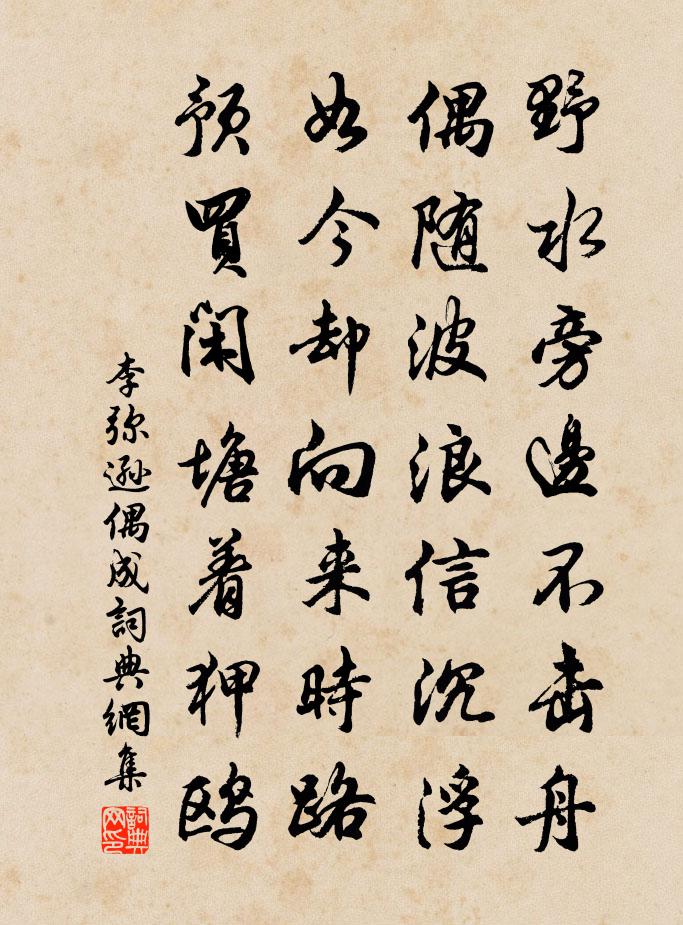 野水旁邊不击舟
偶随波浪信沉浮
如今却向来時路
預買闲塘着狎鸥
李弥遜偶成詞典網集
詞典网印